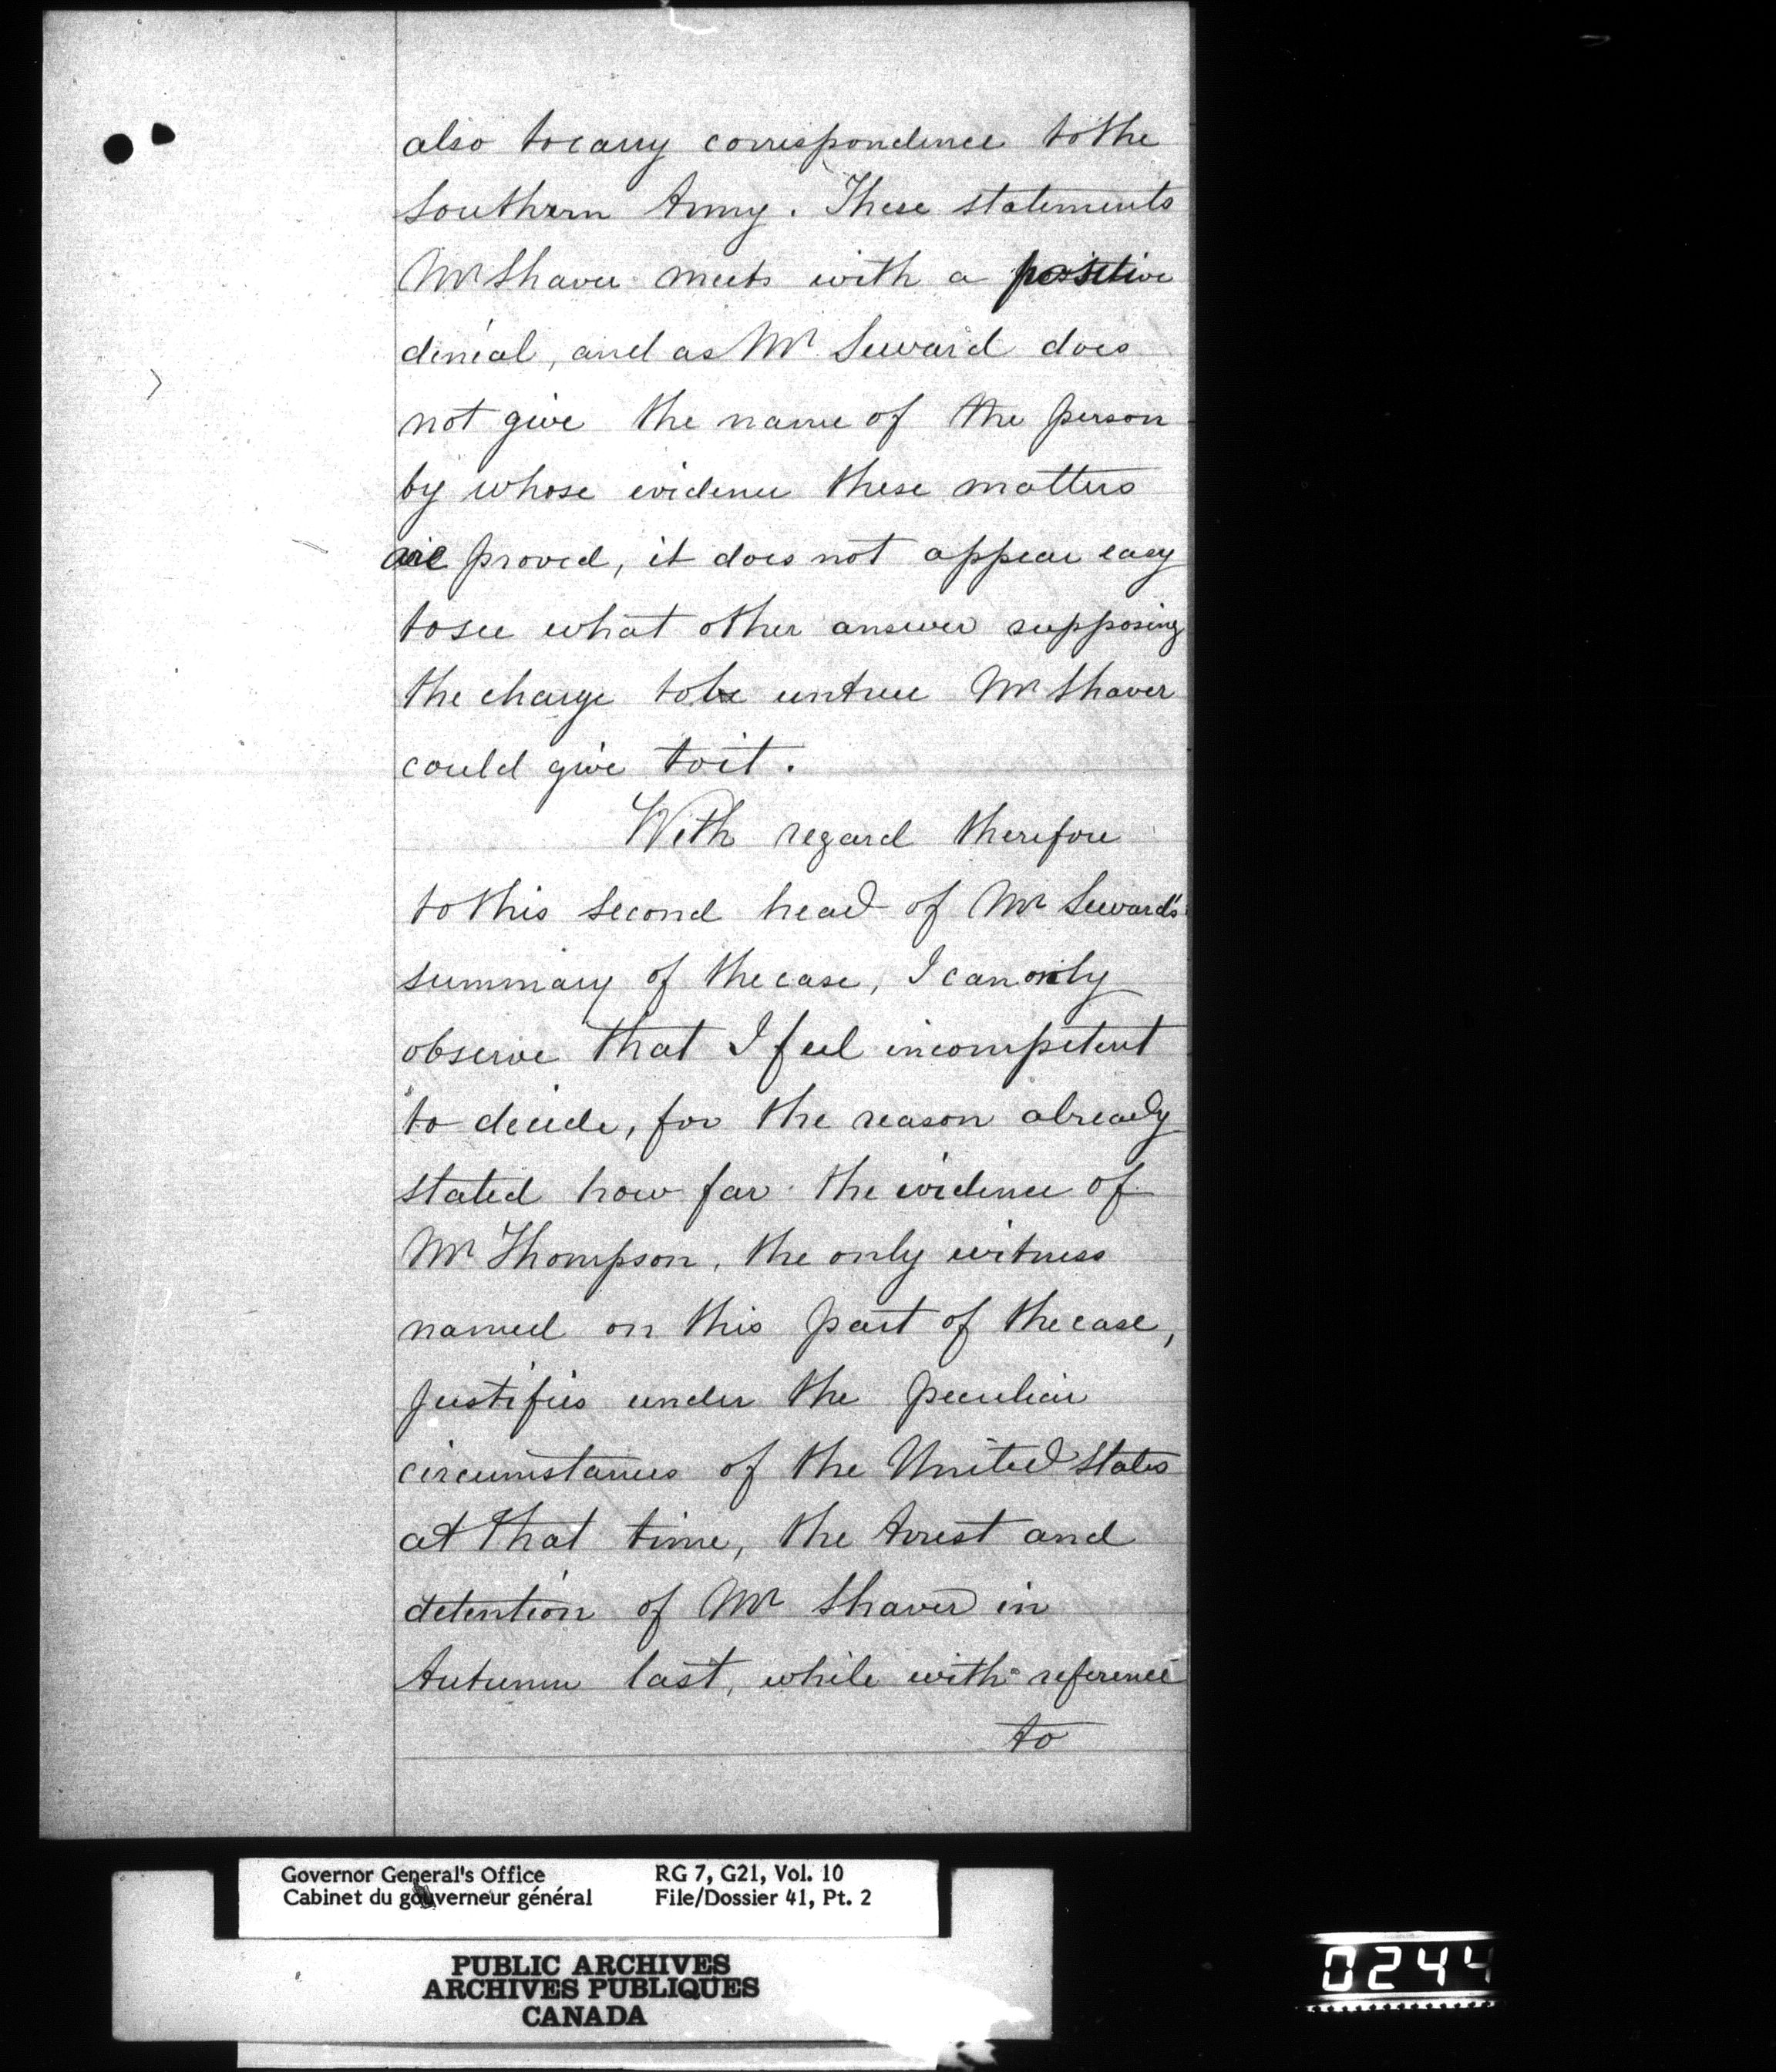 also to carry correspondence to the
Southern Army. These statements
Mr Shaver meets with a positive
denial, and as Mr Seward does
not give the name of the person
by whose evidence these matters
are proved, it does not appear easy
to see what other answer supposing
the charge to be untrue Mr Shaver
could give to it.
With regard therefore
to this second head of Mr Seward's
summary of the case, I can only
observe that I feel incompetent
to decide, for the reason already
stated how far the evidence of
Mr Thompson, the only witness
named on this part of the case,
justifies under the peculiar
circumstances of the United States
at that time, the Arrest and
detention of Mr Shaver in
Autumn last, while with reference
to
Governor General's Office RG 7, G21, Vol. 10
Cabinet du gouverneur général File/Dossier 41, Pt. 2
PUBLIC ARCHIVES
ARCHIVES PUBLIQUES
CANADA
0244